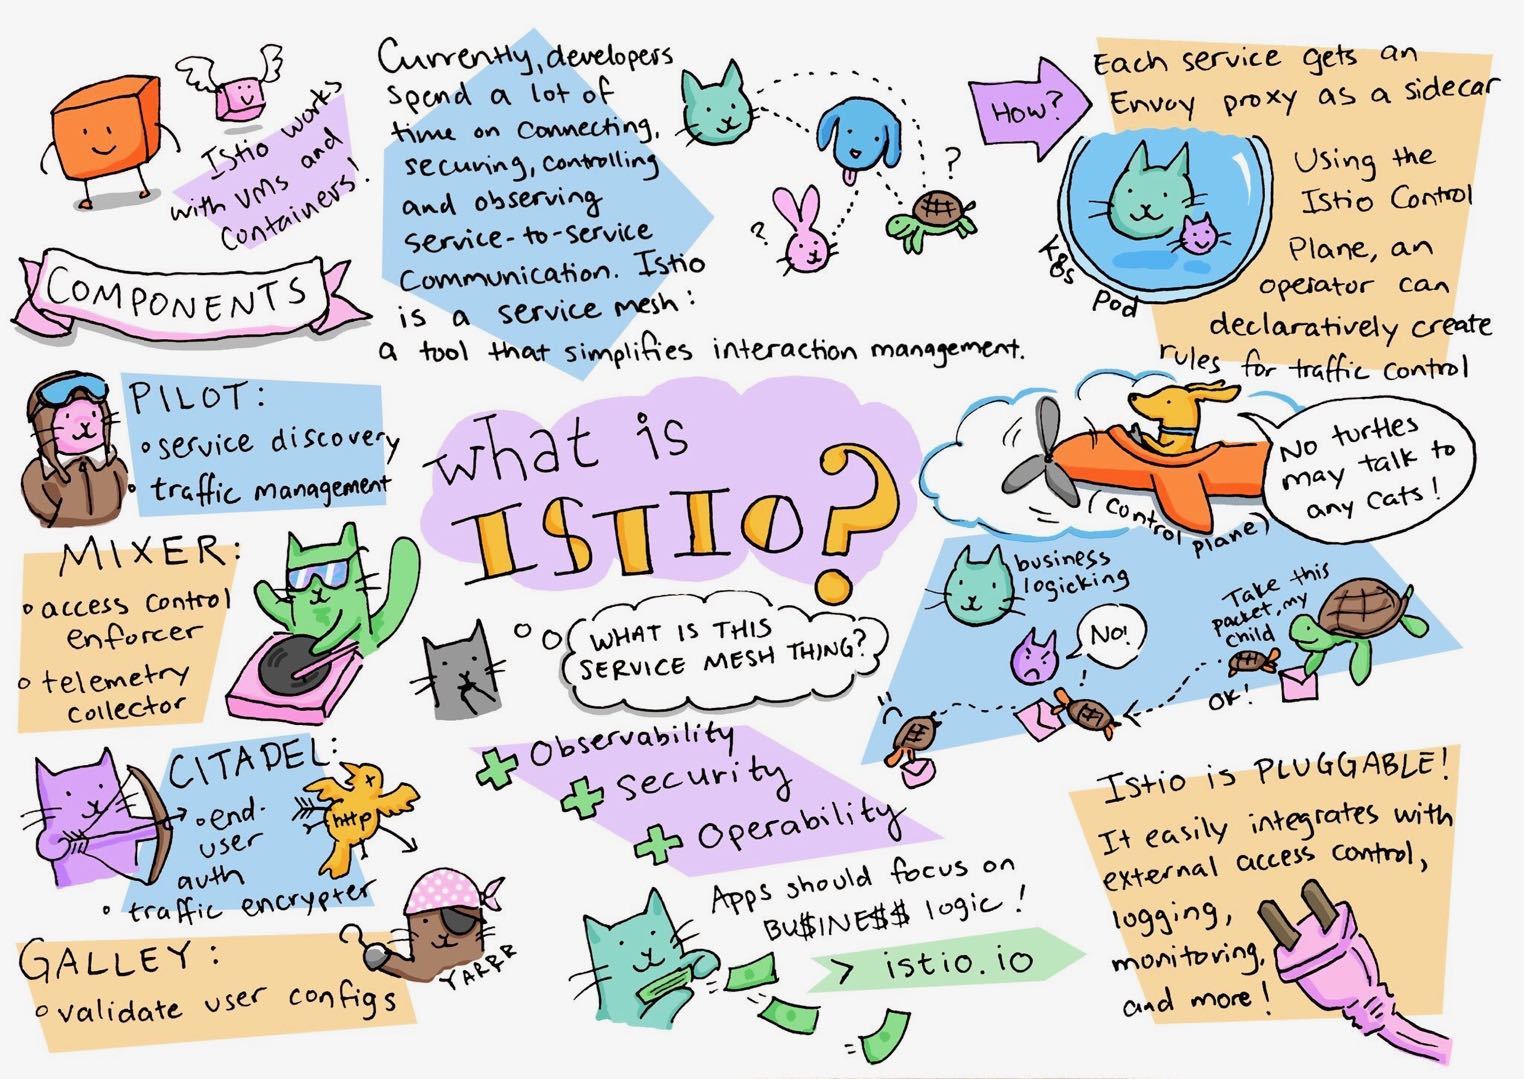 Istio works
with VMs and
containers!
COMPONENTS
Currently, developers
spend a lot of
time on connecting,
securing, controlling
and observing
service-to-service
communication. Istio
is a service mesh:
a tool that simplifies interaction management.
?
?
How?
Each service gets an
Envoy proxy as a sidecar
k8s pod
Using the
Istio Control
Plane, an
operator can
declaratively create
rules for traffic control
PILOT:
• service discovery
• traffic management
MIXER:
• access control
enforcer
• telemetry
collector
CITADEL:
• end-
user
auth
• traffic encrypter
http
GALLEY:
• validate user configs
YARRR
What is
ISTIO?
WHAT IS THIS
SERVICE MESH THING?
+ Observability
+ Security
+ Operability
Apps should focus on
BU$INE$$ logic!
> istio.io
(control plane)
No turtles
may talk to
any cats!
business
logicking
No!
!
Take this
packet, my
child
OK!
Istio is PLUGGABLE!
It easily integrates with
external access control,
logging,
monitoring,
and more!